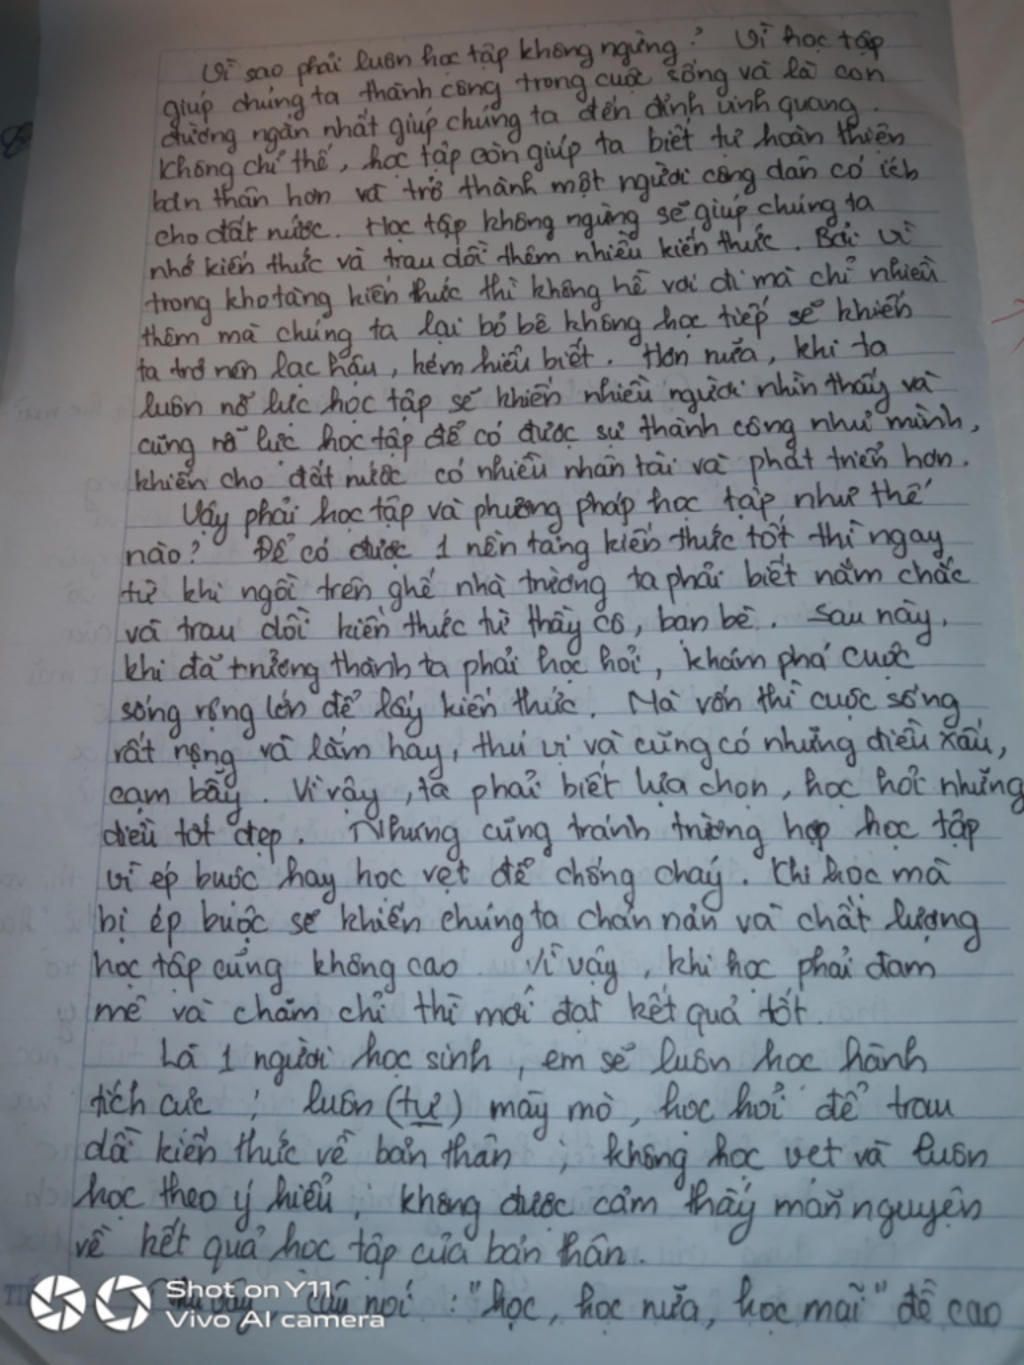 Vì sao phải luôn học tập không ngừng? Vì học tập
giúp chúng ta thành công trong cuộc sống và là con
đường ngắn nhất giúp chúng ta đến đỉnh vinh quang.
Không chỉ thế, học tập còn giúp ta biết tự hoàn thiện
bản thân hơn và trở thành một người công dân có ích
cho đất nước. Học tập không ngừng sẽ giúp chúng ta
nhớ kiến thức và trau dồi thêm nhiều kiến thức. Bởi vì
trong kho tàng kiến thức thì không hề vơi đi mà chỉ nhiều
thêm mà chúng ta lại bỏ bê không học tiếp sẽ khiến
ta trở nên lạc hậu, kém hiểu biết. Hơn nữa, khi ta
luôn nỗ lực học tập sẽ khiến nhiều người nhìn thấy và
cũng nỗ lực học tập để có được sự thành công như mình,
khiến cho đất nước có nhiều nhân tài và phát triển hơn.
Vậy phải học tập và phương pháp học tập như thế
nào? Để có được 1 nền tảng kiến thức tốt thì ngay
từ khi ngồi trên ghế nhà trường ta phải biết nắm chắc
và trau dồi kiến thức từ thầy cô, bạn bè. Sau này,
khi đã trưởng thành ta phải học hỏi, khám phá cuộc
sống rộng lớn để lấy kiến thức. Mà vốn thì cuộc sống
rất rộng và lắm hay, thú vị và cũng có những điều xấu,
cạm bẫy. Vì vậy, ta phải biết lựa chọn, học hỏi những
điều tốt đẹp. Nhưng cũng tránh trường hợp học tập
vì ép buộc hay học vẹt để chống cháy. Khi học mà
bị ép buộc sẽ khiến chúng ta chán nản và chất lượng
học tập cũng không cao. Vì vậy, khi học phải đam
mê và chăm chỉ thì mới đạt kết quả tốt.
Là 1 người học sinh, em sẽ luôn học hành
tích cực; luôn (tự) mày mò, học hỏi để trau
dồi kiến thức về bản thân; không học vẹt và luôn
học theo ý hiểu; không được cảm thấy mãn nguyện
về kết quả học tập của bản thân.
câu nói: "học, học nữa, học mãi" đề cao
Shot on Y11
Vivo AI camera